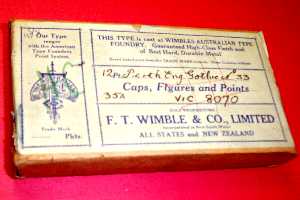 Our Type
ranges
with the American
Type Founders
Point System.
Trade Mark
THIS TYPE is cast at WIMBLES AUSTRALIAN TYPE
FOUNDRY. Guaranteed High-Class Finish and
of Best Hard, Durable Metal
Caps, Figures and Points
VIC. 8070
F. T. WIMBLE & CO., LIMITED
ALL STATES and NEW ZEALAND